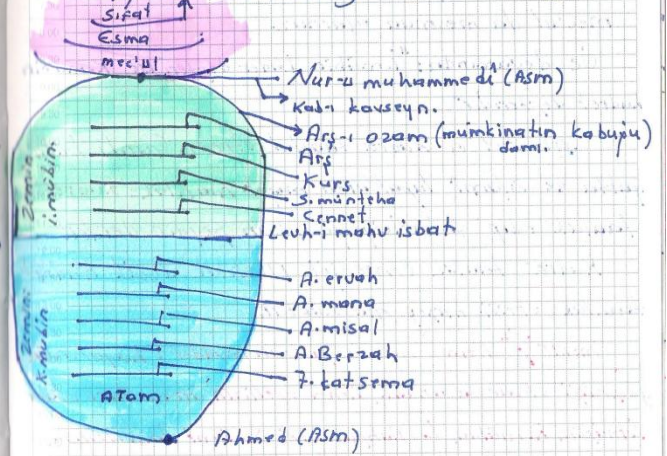 Sıfat
Esma
mec'ul
Nur-u muhammedî (Asm)
Kab-ı kavseyn.
Arş-ı azam (mümkinatın kabuğu)
damı.
Arş
Kurs
S. münteha
Cennet
Levh-i mahv isbat
zemin
i. mübin.
A. ervah
A. mana
A. misal
A. Berzah
7. kat sema
zemini
K. mübin
ATom
Ahmed (Asm)